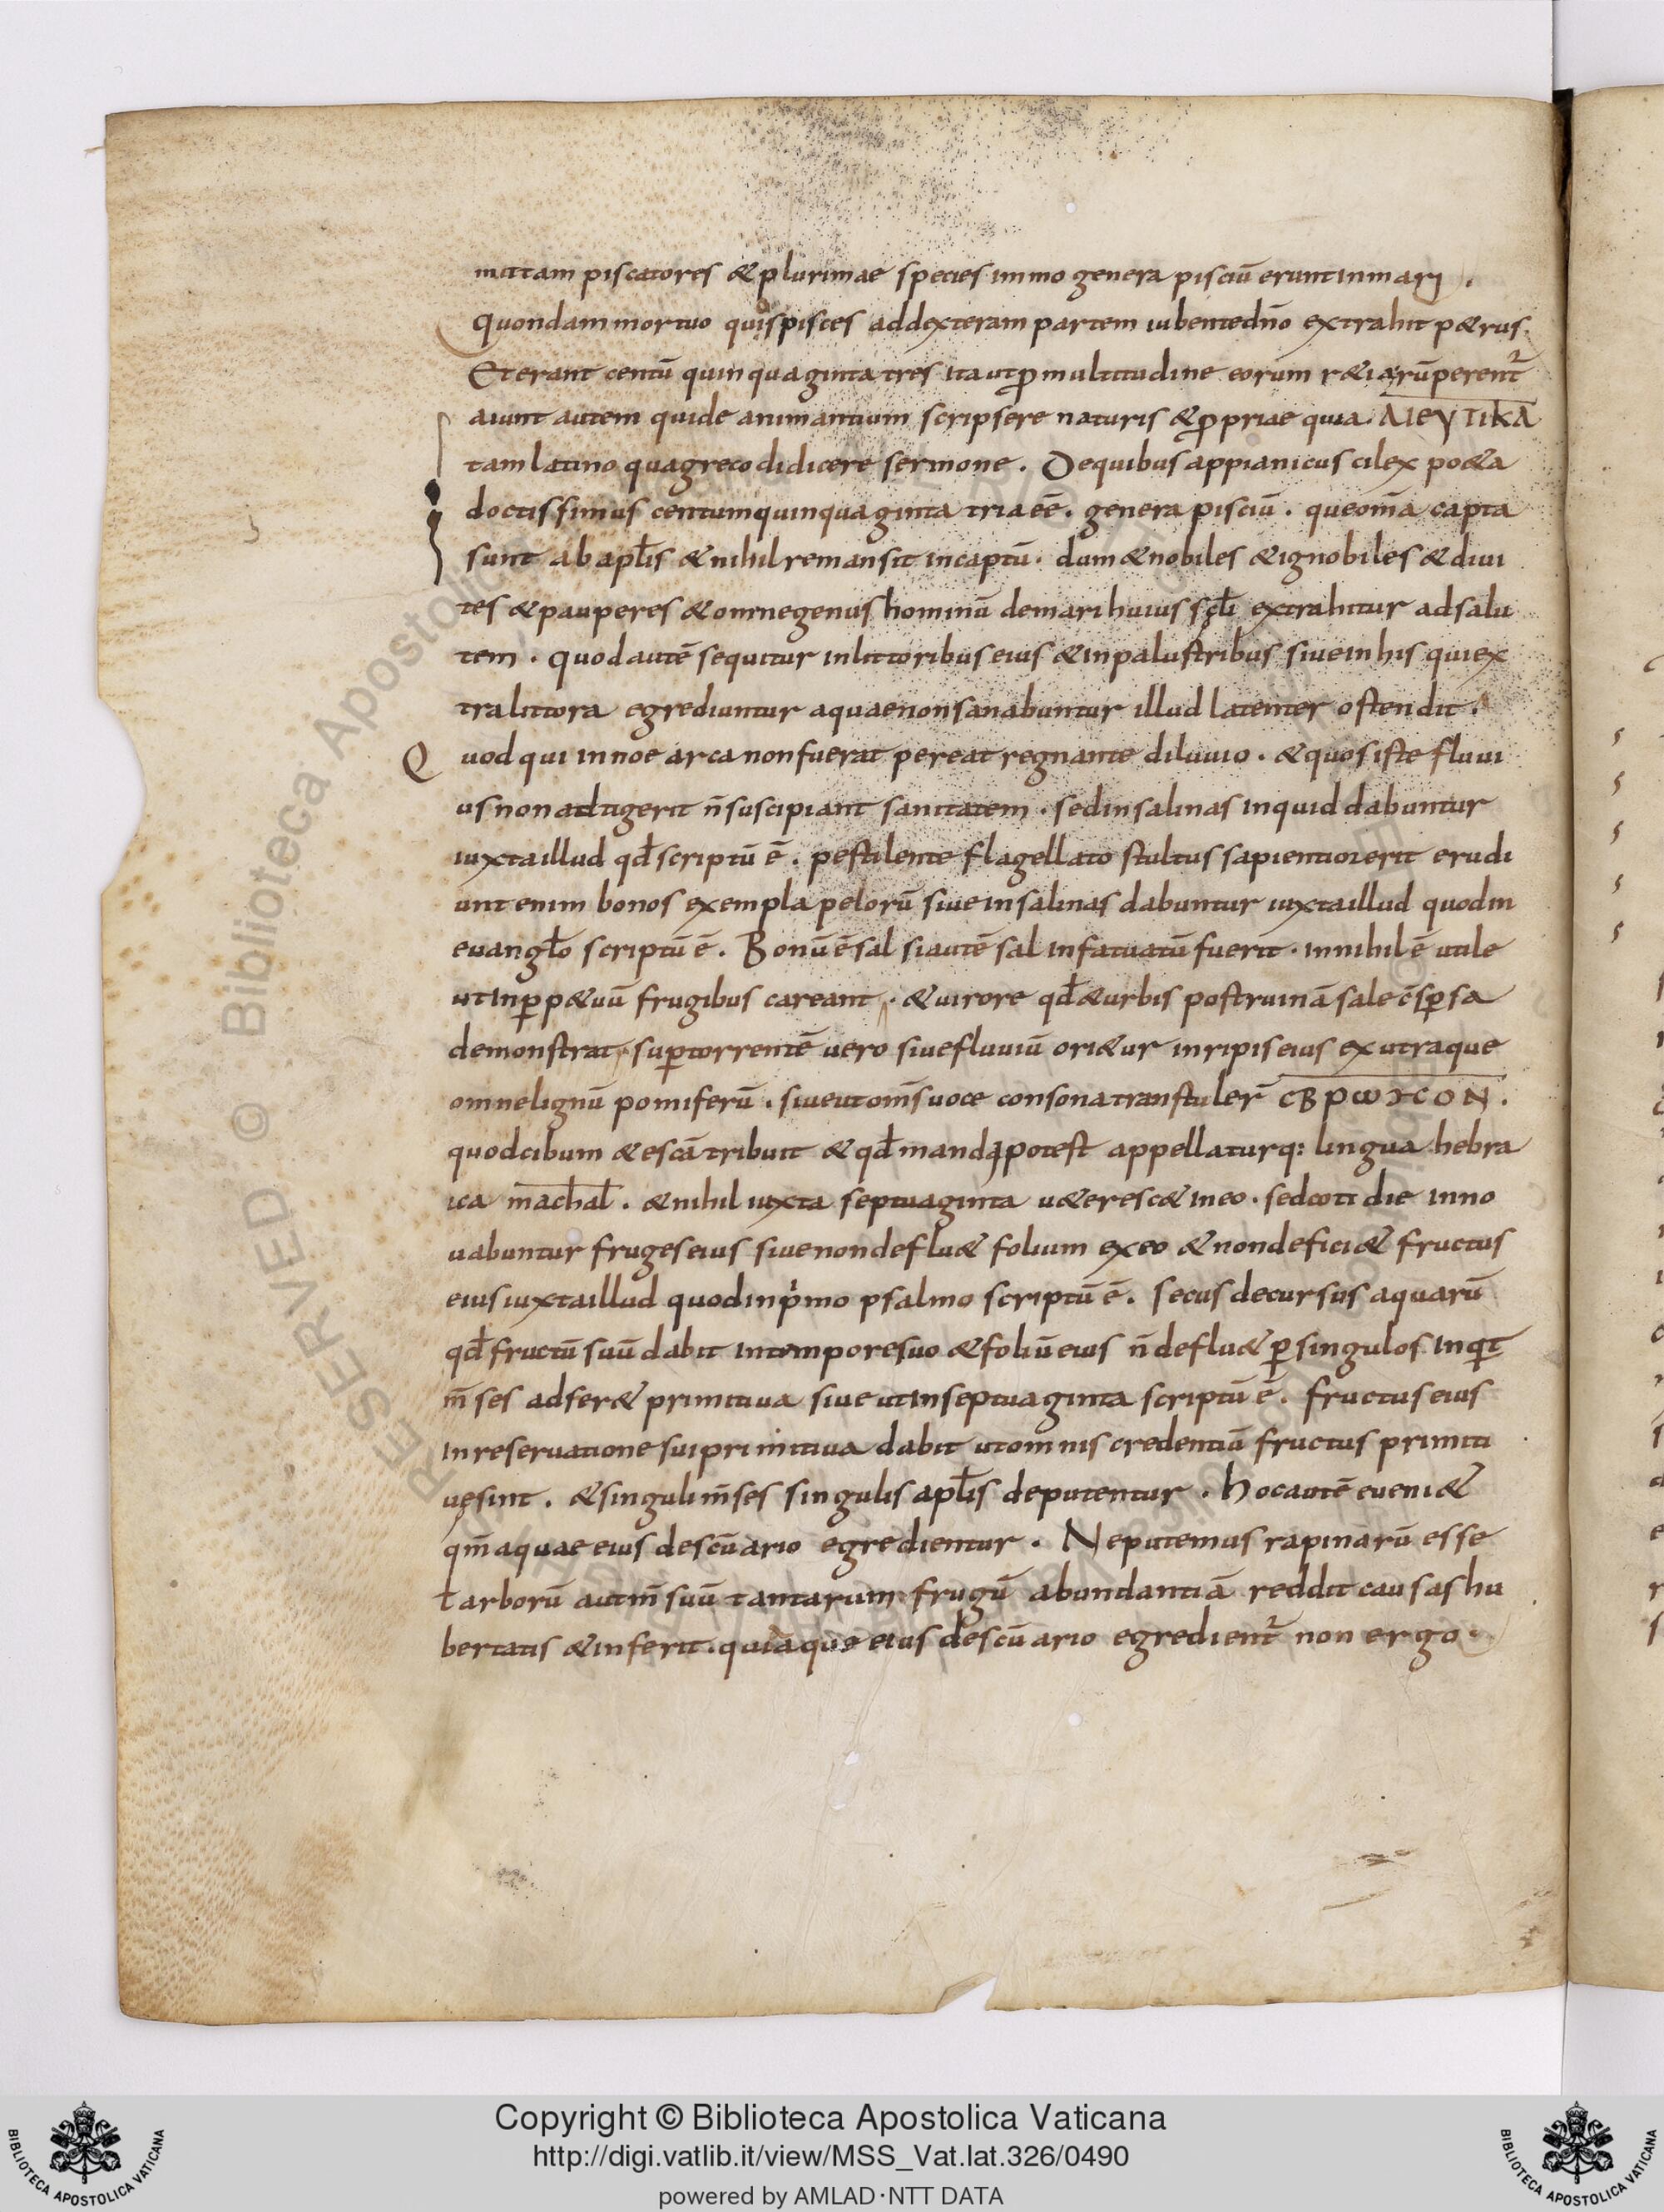 mittam piscatores & plurimae species immo genera pisciū erunt in mari .
Quondam mortuo quos pisces ad dexteram partem iubente dn̄o extrahit p&rus.
Et erant centū quinquaginta tres ita ut p̱ multitudine eorum r&ia rūperent᷑
aiunt autem qui de animantium scripsere naturis & p̱priae quia ΑΙΕΥΤΙΚΑ
tam latino qua greco didicere sermone . De quibus appianicus cilex po&a
doctissimus centum quinquaginta tria eē . genera pisciū . que om̄a capta
sunt ab apl̄is & nihil remansit incaptū . dum & nobiles & ignobiles & diui
tes & pauperes & omne genus hominū de mari huius scl̄i extrahitur ad salu
tem . quod autē sequitur in littoribus eius & in palustribus siue in his qui ex
tra littora egrediuntur aquae non sanabuntur illud latenter ostendit .
Quod qui in noe arca non fuerat pereat regnante diluuio . & quos iste fluui
us non adtigerit n̄ suscipiant sanitatem . sed in salinas inquid dabuntur
iuxta illud qd̄ scriptū ē . pestilente flagellato stultus sapientior erit erudi
unt enim bonos exempla pelorū siue in salinas dabuntur iuxta illud quod in
euangl̄o scriptū ē . Bonū ē sal si autē sal infatuatū fuerit . in nihil ē utile
ut in p̱p&uū frugibus careant . & uirore qd̄ & urbis post ruinā sale c̄sp̱sa
demonstrat . sup̱ torrentē uero siue fluuiū ori&ur in ripis eius ex utraque
omne lignū pomiferū . siue ut om̄s uoce consona transtuler̄ CΒΡωΣCΟΝ .
quod cibum & escā tribuit & qd̄ mandi potest appellaturq: lingua hebra
ica māchal̄ . & nihil iuxta septuaginta u&eresc& in eo . sed coti die inno
uabuntur fruges eius siue non deflu& folium ex eo & non defici& fructus
eius iuxta illud quod in p̍mo psalmo scriptū ē . secus decursus aquarū
qd̄ fructū suū dabit in tempore suo & foliū eius n̄ deflu& p̱ singulos inqt̄
m̄ses adfer& primitiua siue ut in septuaginta scriptū ē . fructus eius
in reseruatione sui primitiua dabit ut omnis credentiū fructus primiti
uę sint . & singuli m̄ses singulis apl̄is deputentur . Hoc autē eueni&
qm̄ aquae eius de scūario egredientur . Ne putemus rapinarū esse
t̄ arborū aut m̄suū tantarum frugū abundantiā reddit causas hu
bertatis & inferit . quia aque eius de scūario egredient᷑ non ergo .
Copyright © Biblioteca Apostolica Vaticana
http://digi.vatlib.it/view/MSS_Vat.lat.326/0490
powered by AMLAD·NTT DATA